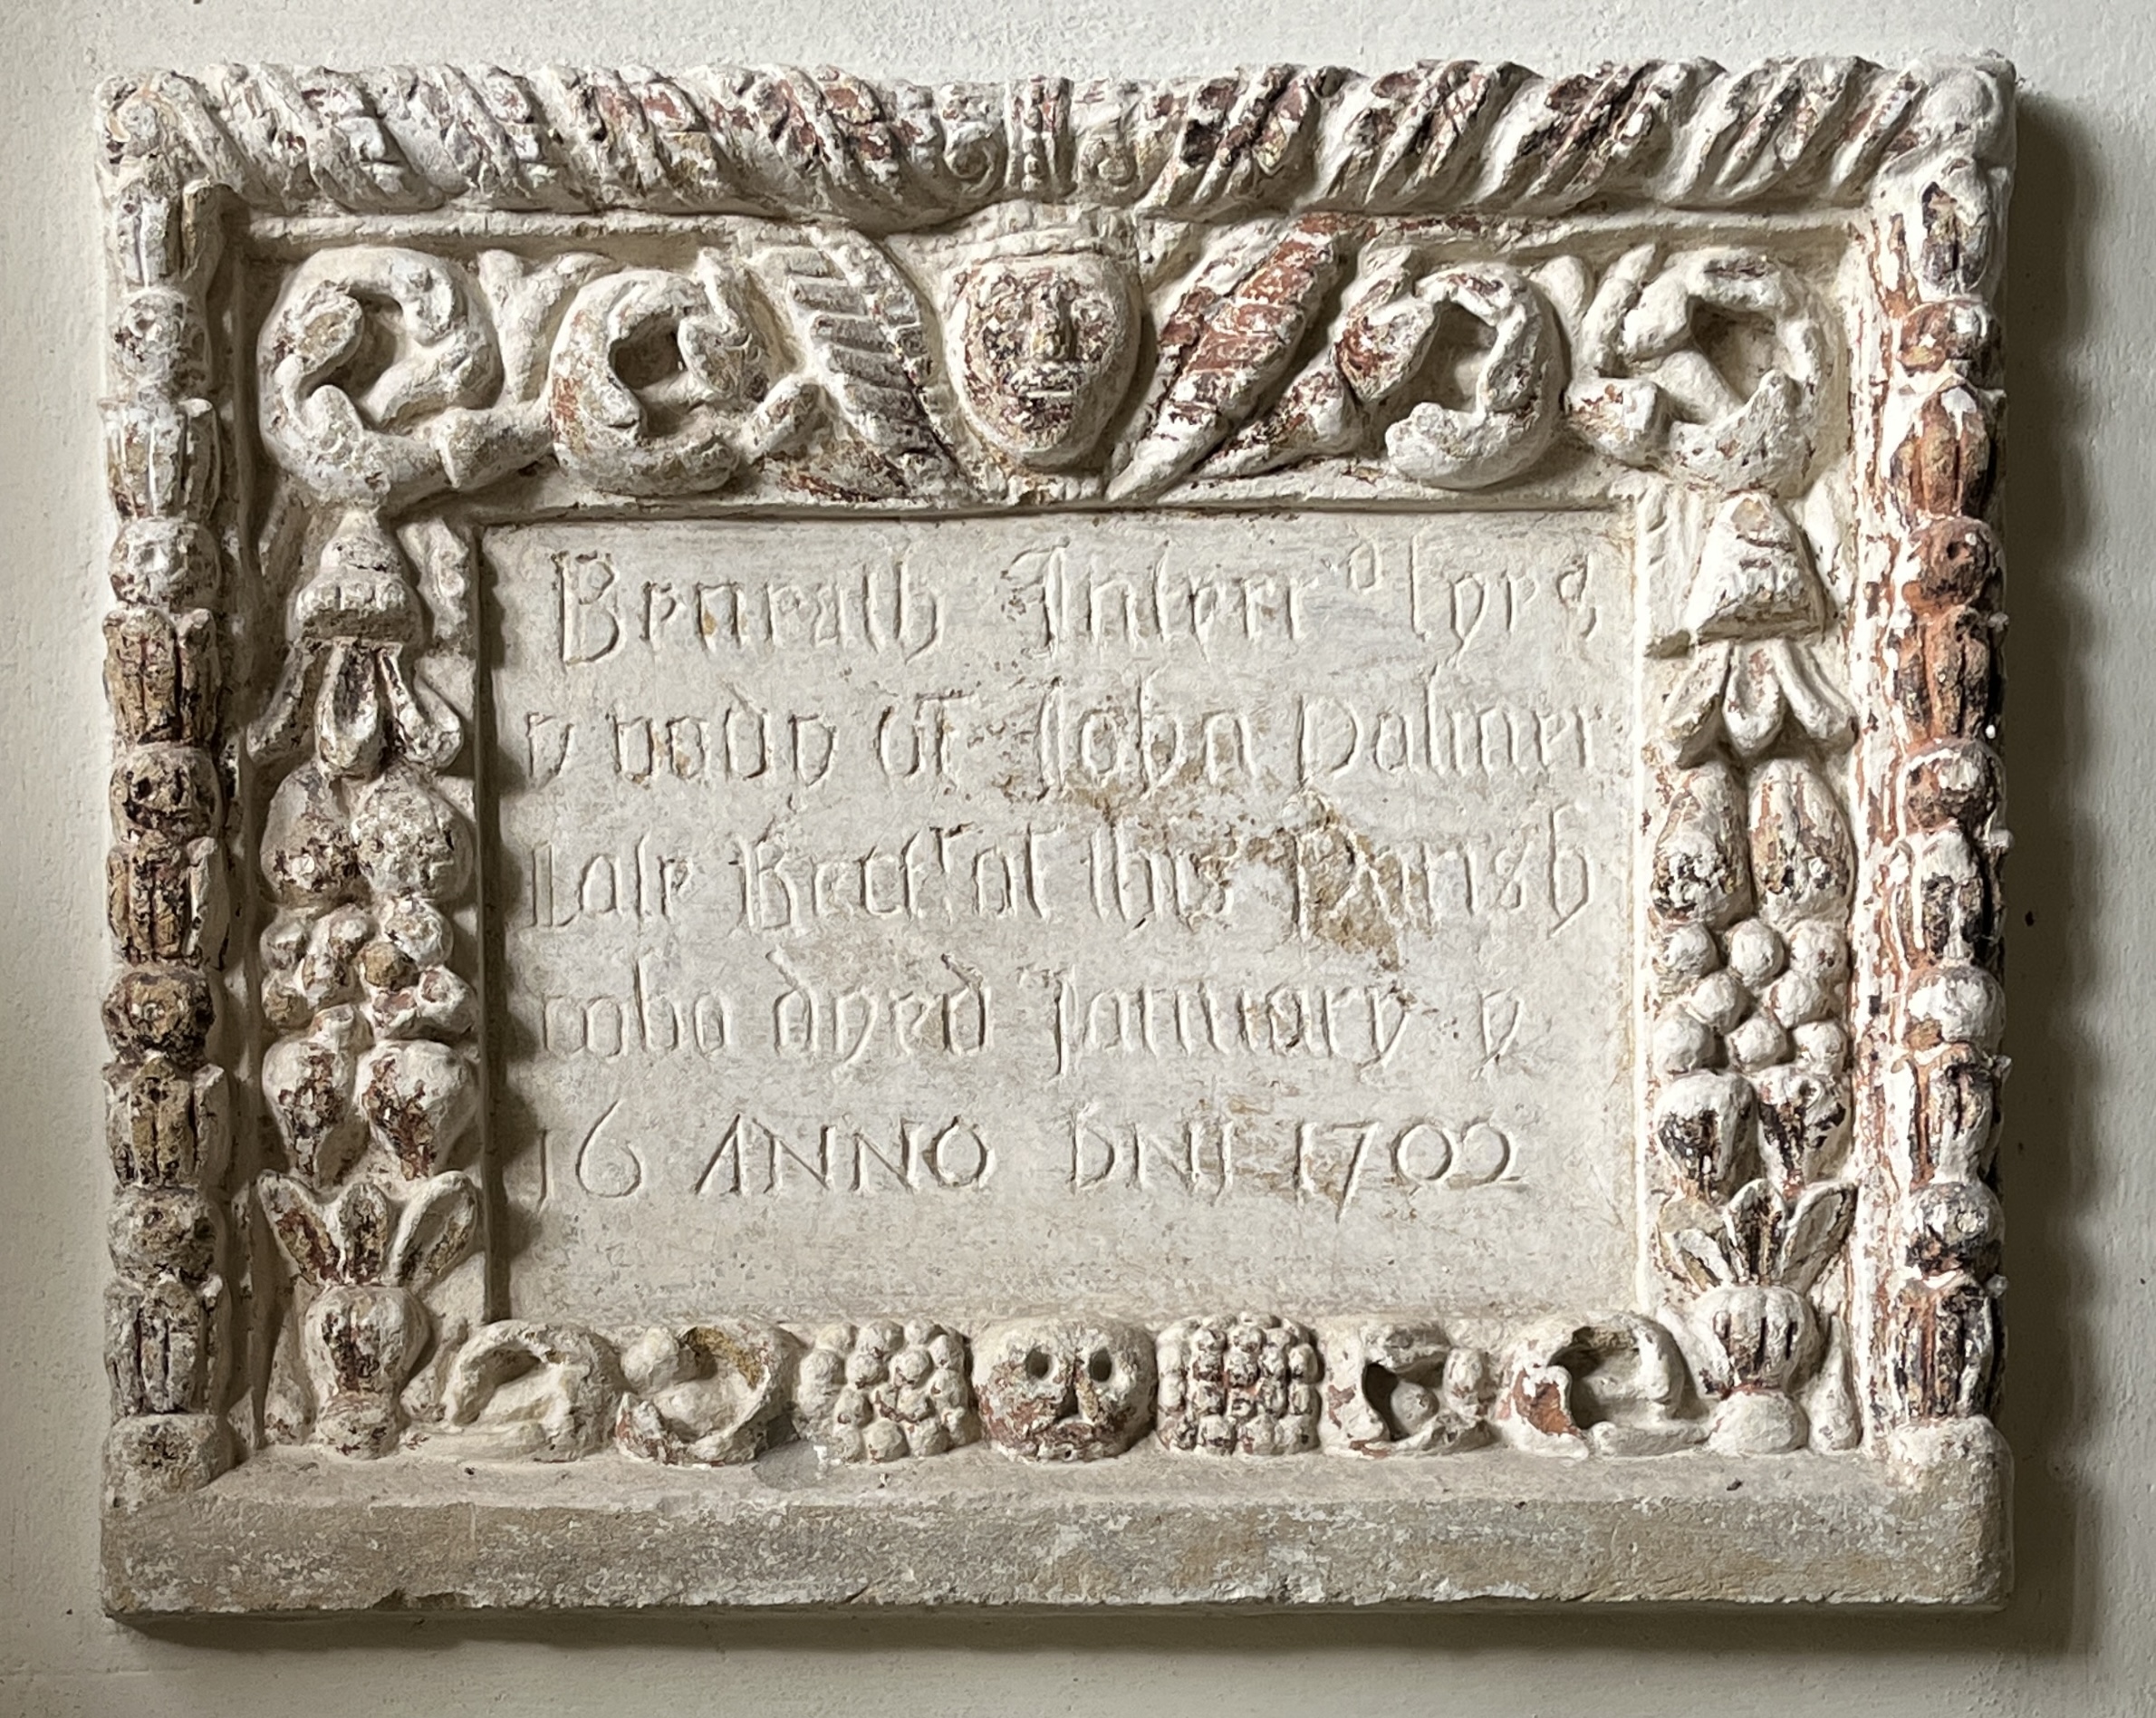 Beneath Interr d lyes
y body of John Palmer
Late Rect.r of this Parish
who dyed January y
16 ANNO DNI 1702